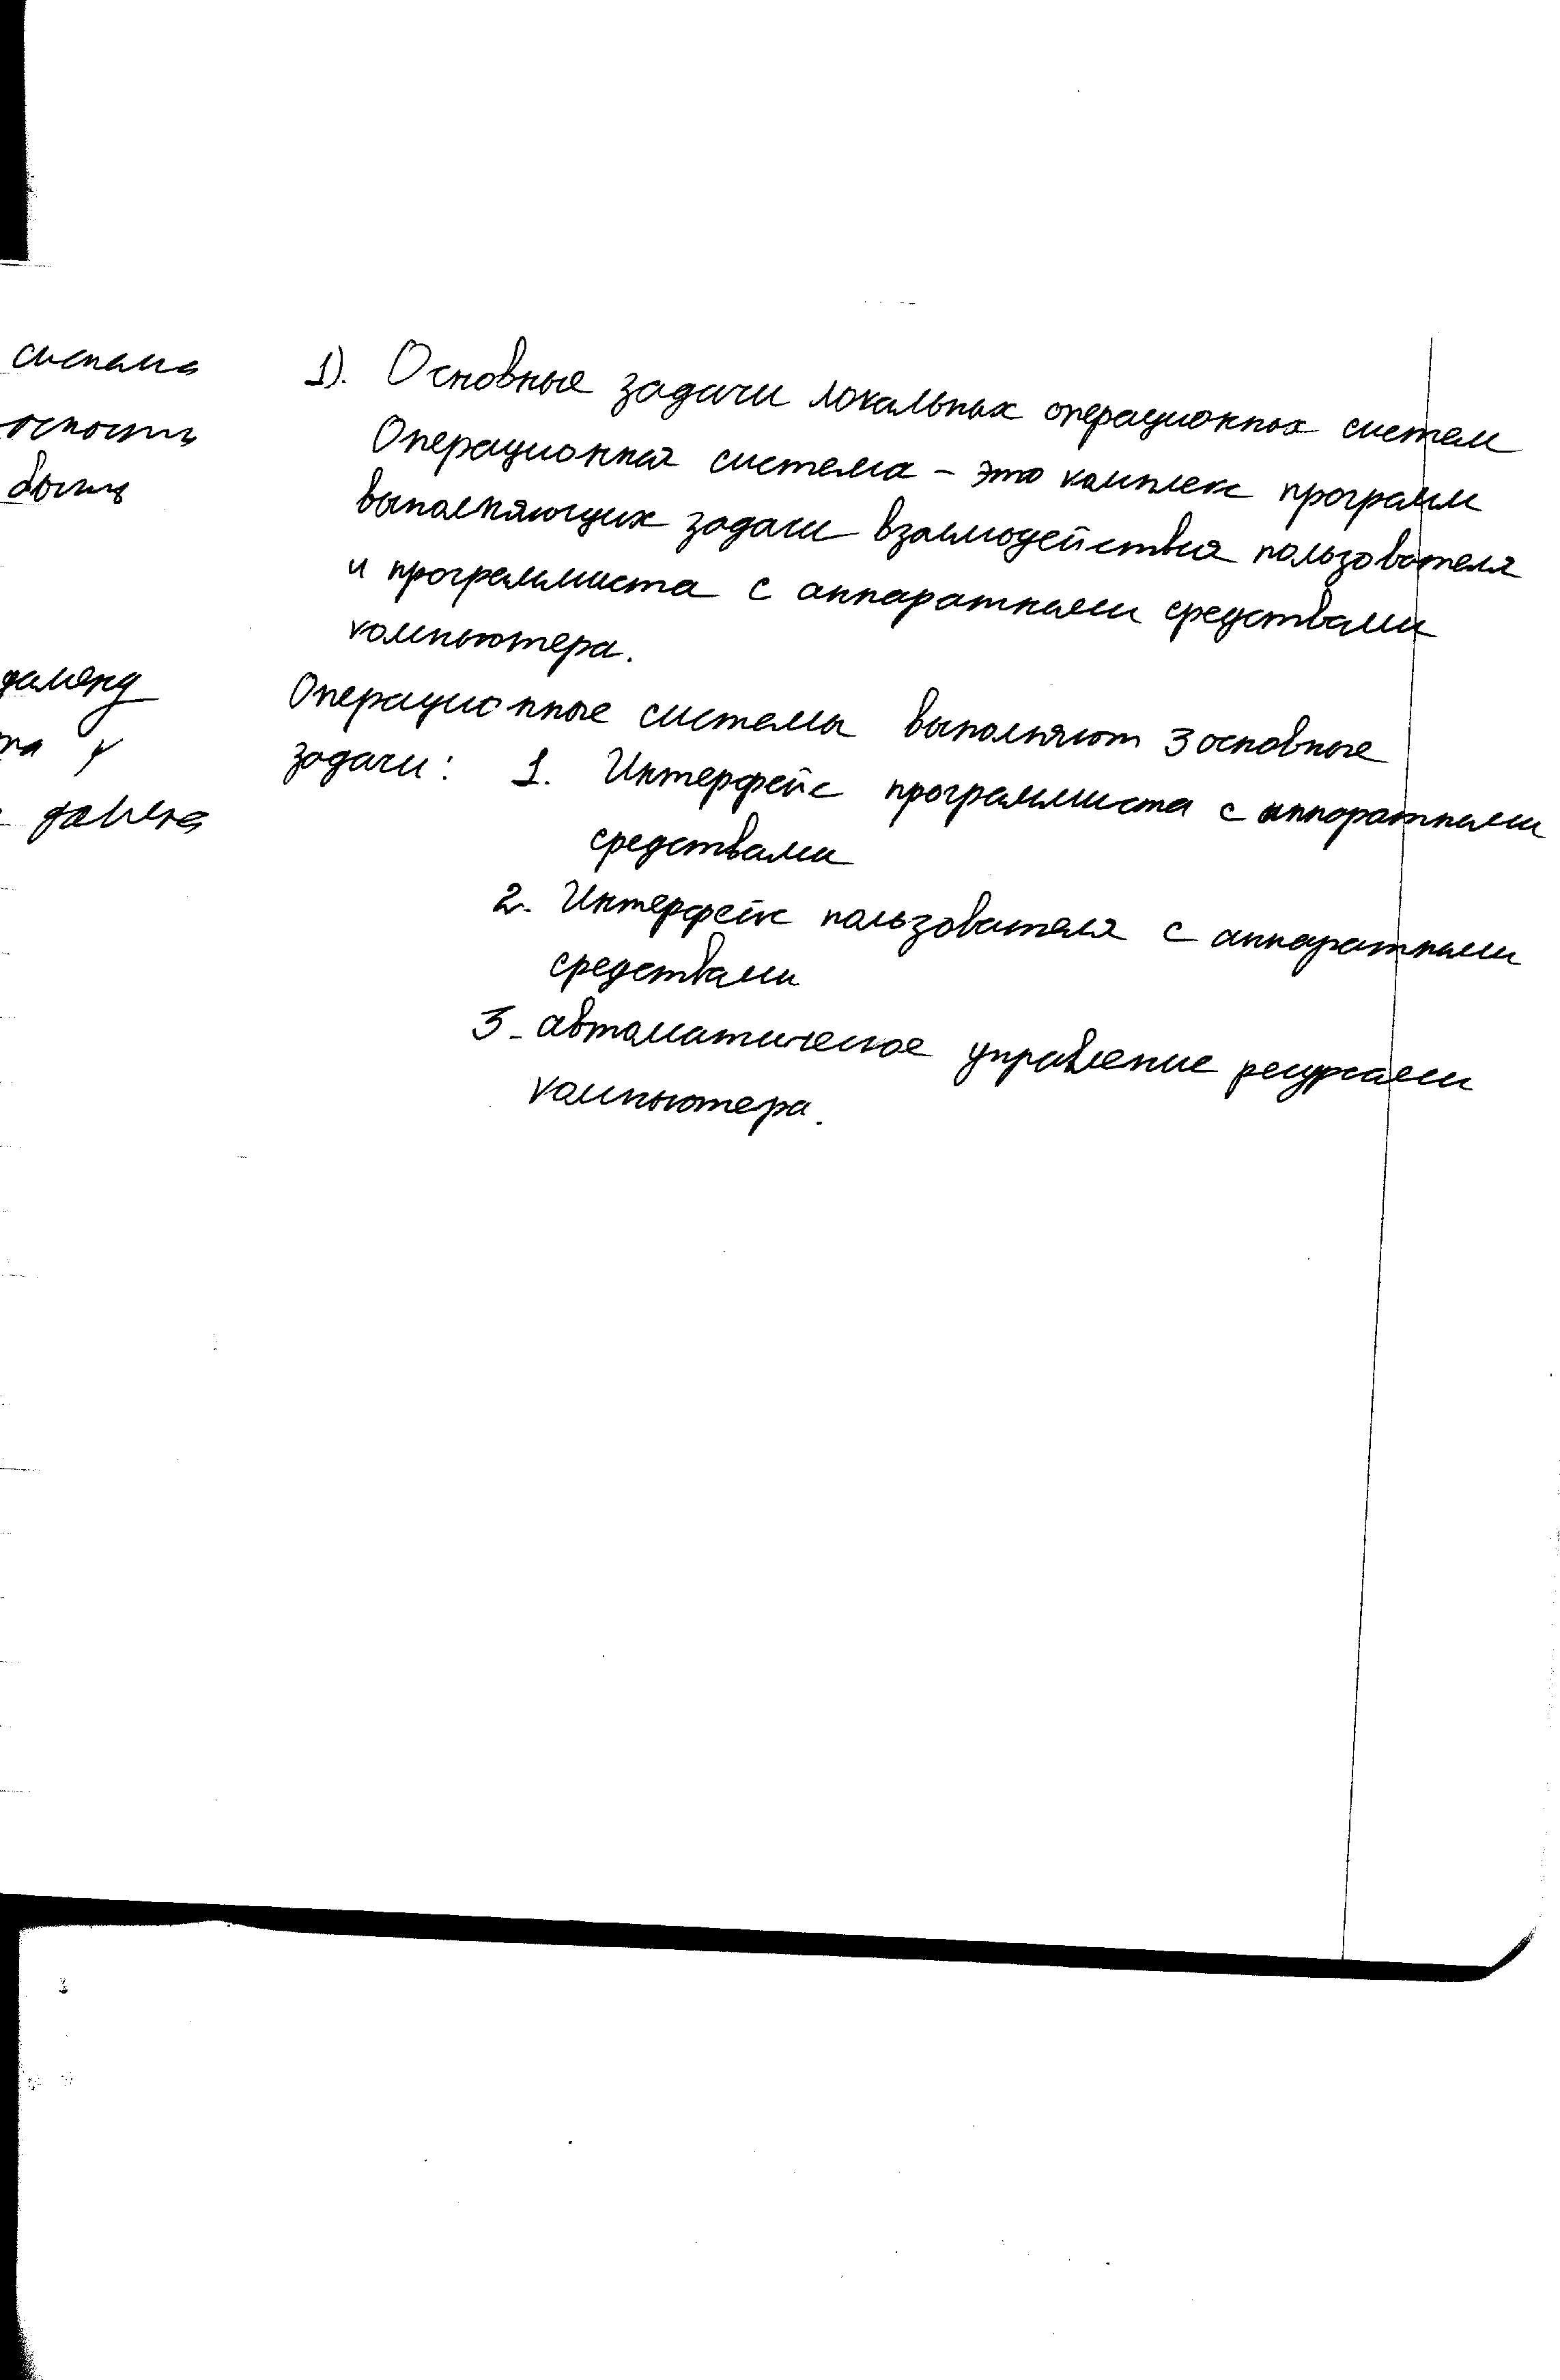 1). Основные задачи локальных операционных систем
Операционная система – это комплекс программ
выполняющих задачи взаимодействия пользователя
и программиста с аппаратными средствами
компьютера.
Операционные системы выполняют 3 основные
задачи: 1. Интерфейс программиста с аппаратными
средствами
2. Интерфейс пользователя с аппаратными
средствами
3. автоматическое управление ресурсами
компьютера.